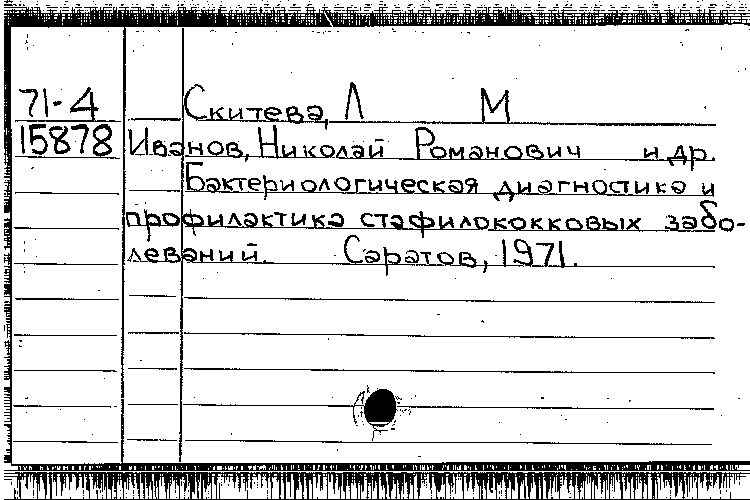 71-4 Скитева, Л М
15878 Иванов, Николай Романович и др.
Бактериологическая диагностика и
профилактика стафилококковых забо-
леваний. Саратов, 1971.